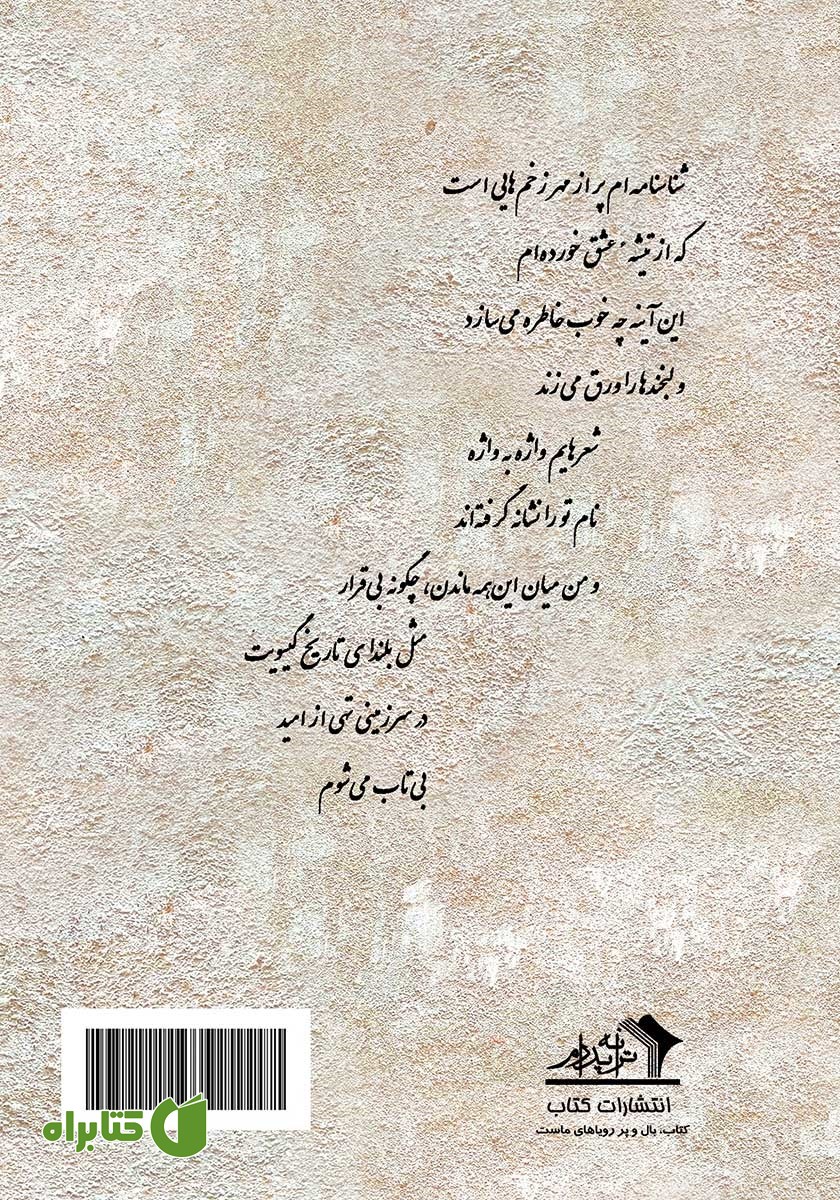 شناسنامه ام پر از مهر زخم هایی است
که از تیشهٔ عشق خورده‌ام
این آینه چه خوب خاطره می‌سازد
و لبخندها را ورق می‌زند
شعرهایم واژه به واژه
نام تو را نشانه گرفته‌اند
و من میان این همه ماندن، چگونه بی‌قرار
مثل بلندای تاریخ گیسویت
در سرزمینی تهی از امید
بی تاب می‌شوم
ترانه پدرام
انتشارات کتاب
کتاب، بال و پر رویاهای ماست
کتابراه